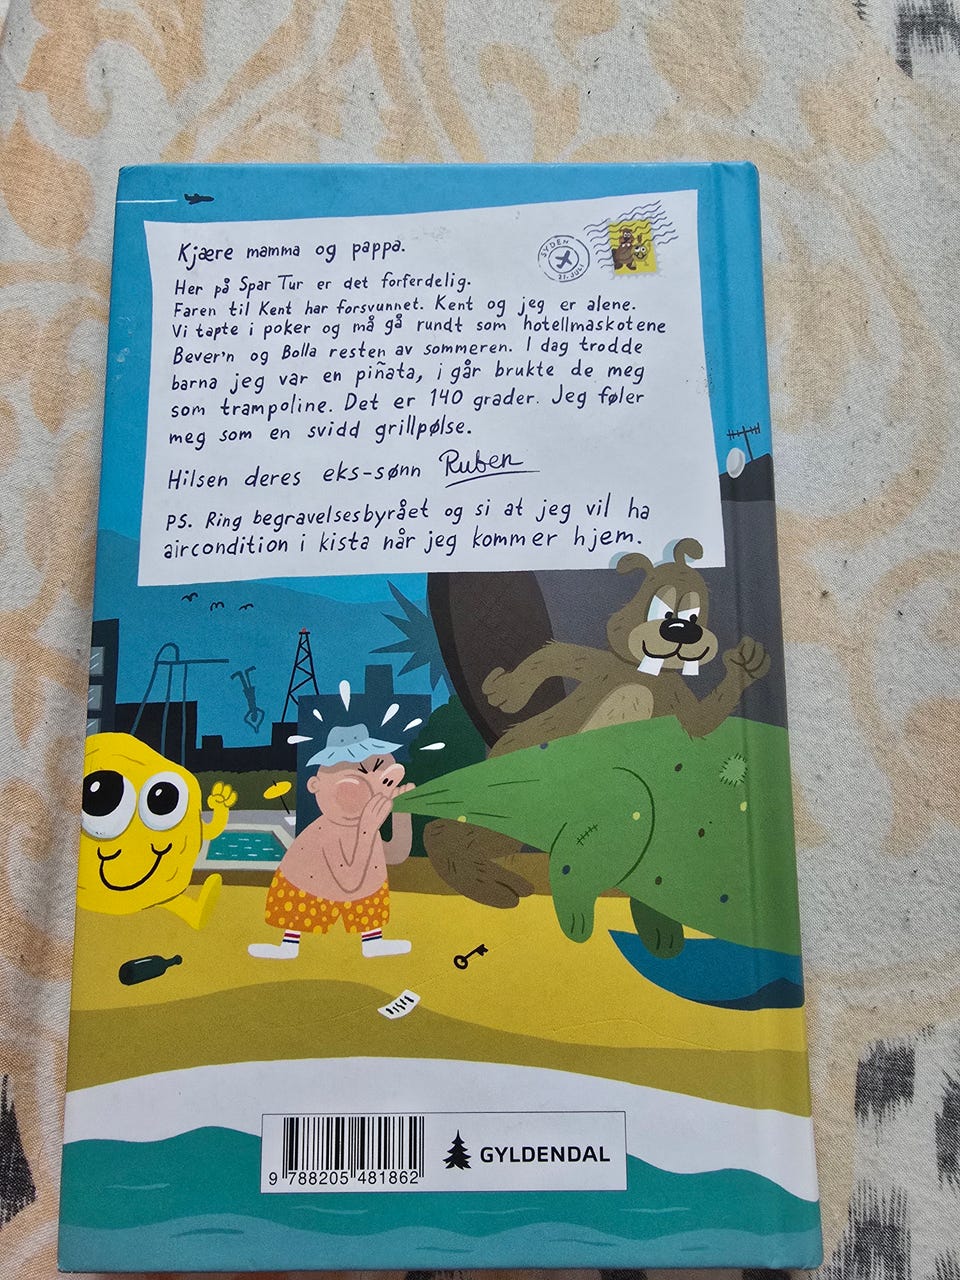 Kjære mamma og pappa.
SYDEN
27. JULI
Her på Spar Tur er det forferdelig.
Faren til Kent har forsvunnet. Kent og jeg er alene.
Vi tapte i poker og må gå rundt som hotellmaskotene
Bever'n og Bolla resten av sommeren. I dag trodde
barna jeg var en piñata, i går brukte de meg
som trampoline. Det er 140 grader. Jeg føler
meg som en svidd grillpølse.
Hilsen deres eks-sønn Ruben
PS. Ring begravelsesbyrået og si at jeg vil ha
aircondition i kista når jeg kommer hjem.
9 788205 481862
GYLDENDAL